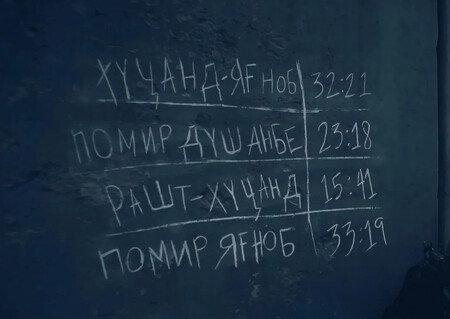 ХУҶАНД-ЯҒНОБ 32:21
ПОМИР ДУШАНБЕ 23:18
РАШТ-ХУҶАНД 15:41
ПОМИР ЯҒНОБ 33:19